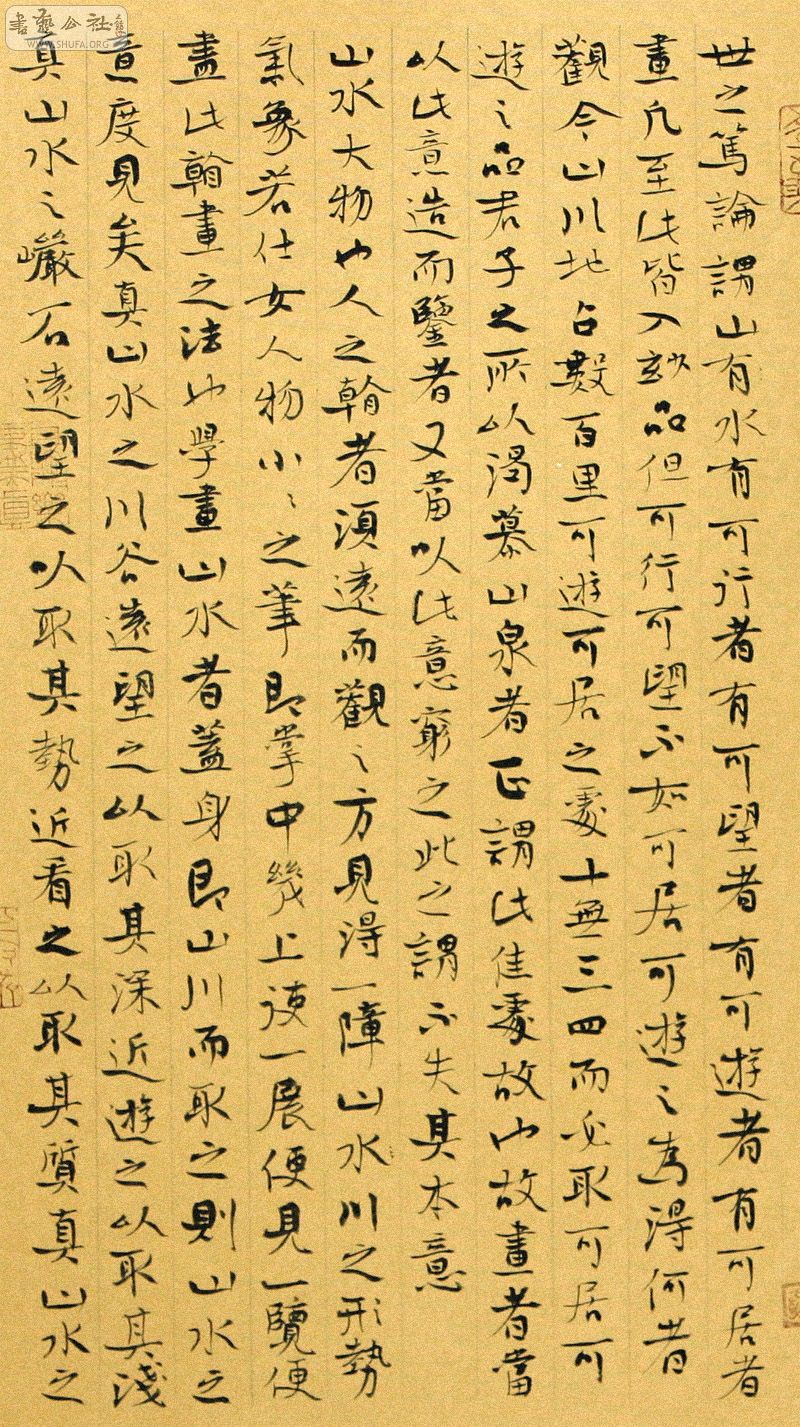 世之篤論謂山有水有可行者有可望者有可遊者有可居者
畫凡至此皆入妙品但可行可望不如可居可遊之為得何者
觀今山川地占數百里可遊可居之處十無三四而必取可居可
遊之品君子之所以渴慕山泉者正謂此佳處故也故畫者當
以此意造而鑒者又當以此意窮之此之謂不失其本意
山水大物也人之翰者須遠而觀之方見得一障山水川之形勢
氣象若仕女人物小〻之筆即掌中幾上一展便見一覽便
盡此翰畫之法也學畫山水者蓋身即山川而取之則山水之
意度見矣真山水之川谷遠望之以取其深近遊之以取其淺
真山水之巖石遠望之以取其勢近看之以取其質真山水之
書藝公社
WWW.SHUFA.ORG